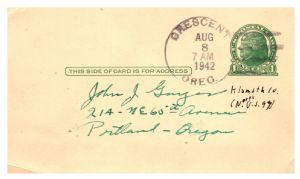 CRESCENT
AUG
8
7 AM
1942
OREG.
THIS SIDE OF CARD IS FOR ADDRESS
John J.
214 - NE 65th Avenue
Portland - Oregon
Klamath Co.